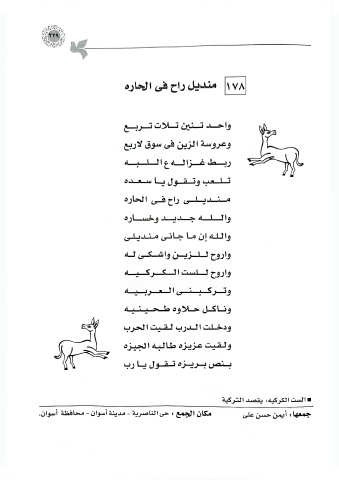 ٢٢٩
١٧٨ منديل راح فى الحاره
واحد تنين تلات تربع
وعروسة الزين فى سوق لاربع
ربط غزاله ع اللبه
تلعب وتقول يا سعده
منديلى راح فى الحاره
والله جديد وخساره
والله إن ما جانى منديلى
واروح للزين واشكى له
واروح للست الكركيه
وتركبنى العربيه
وناكل حلاوه طحينيه
ودخلت الدرب لقيت الحرب
ولقيت عزيزه طالبه الجيزه
بنص بريزه تقول يا رب
■ الست الكركيه: يقصد التركية
جمعها: أيمن حسن على مكان الجمع: حى الناصرية - مدينة أسوان - محافظة أسوان.